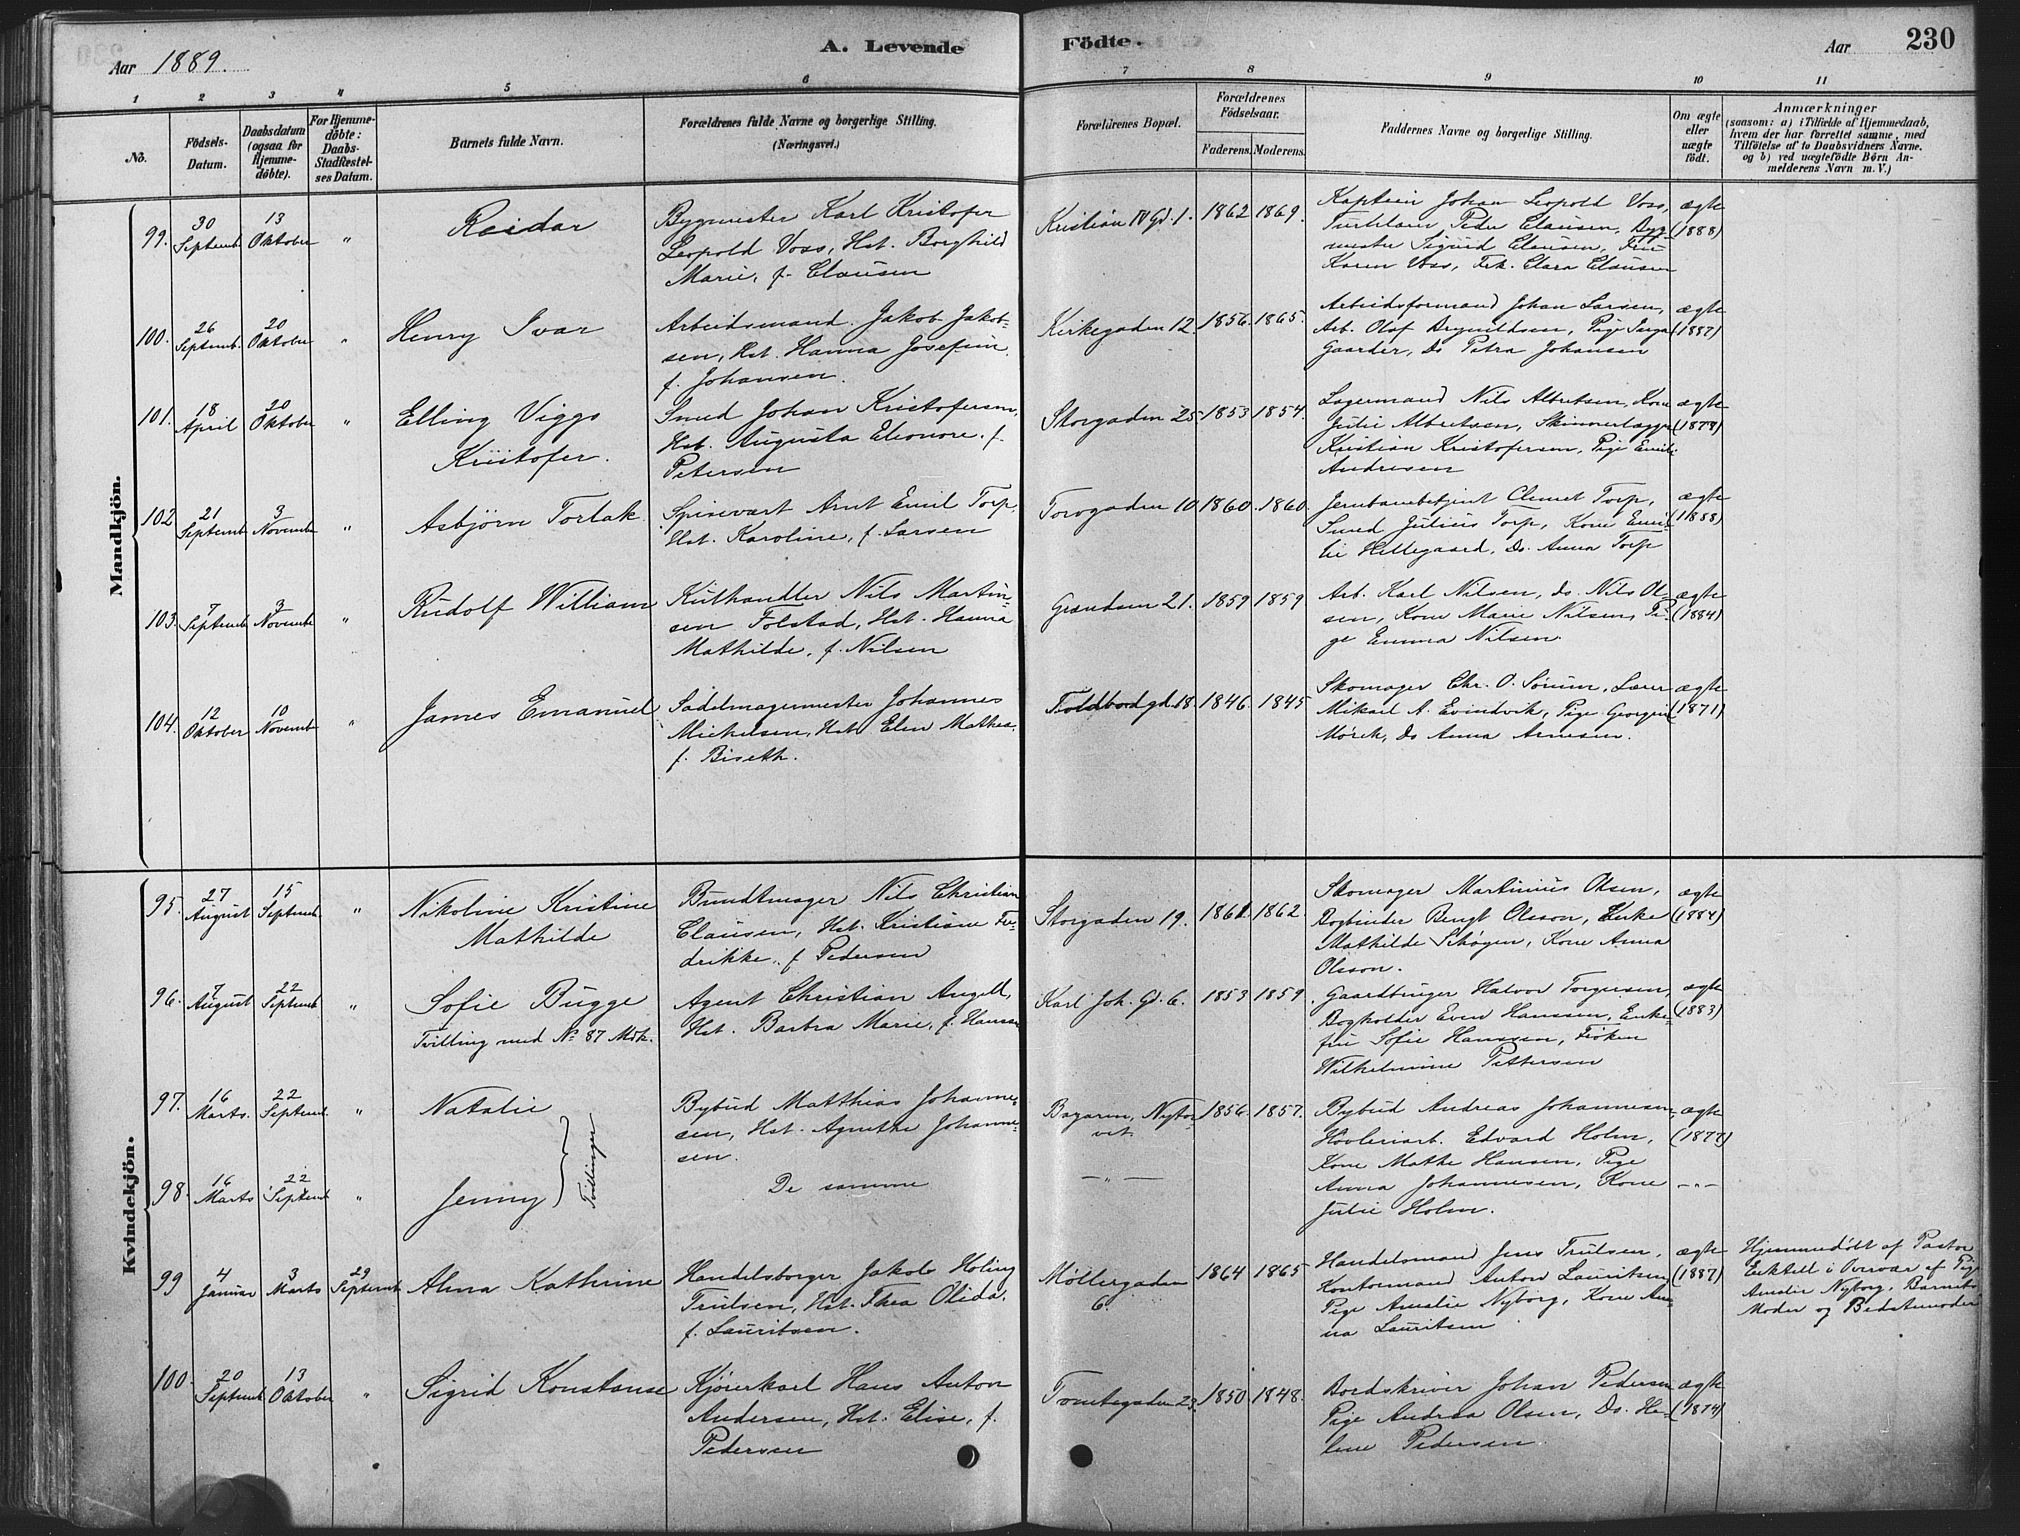 Aar 1889.
A. Levende
Födte.
Aar
230
1 2 3 4 5 6 7 8 9 10 11
No.
Födsels-Datum.
Daabsdatum (ogsaa for Hjemme-döbte).
For Hjemme-döbte: Daabs-Stadfæstel-ses Datum.
Barnets fulde Navn.
Forældrenes fulde Navne og borgerlige Stilling. (Næringsvei.)
Forældrenes Bopæl.
Forældrenes Födselsaar.
Faderens. Moderens.
Faddernes Navne og borgerlige Stilling.
Om ægte eller uægte födt.
Anmærkninger
(saasom: a) i Tilfælde af Hjemmedaab, hvem der har forrettet samme, med Tilföielse af to Daabsvidners Navne. og b) ved uægtefödte Börn An-melderens Navn m. V.)
Mandkjön.
99. 30 Septemb. 13 Oktober " Reidar
Bygmester Karl Kristofer
Leopold Voss, Hst. Borghild
Marie, f. Clausen
Kristian IV Gd. 1. 1862 1869.
Kaptein Johan Leopold Voss,
Peder Clausen, Byg-
mester Sigurd Clausen, Fru
Karen Voss, Frk. Clara Clausen
ægte (1888)
100. 26 Septemb. 20 Oktober " Henry Ivar
Arbeidsmand Jakob Jakob-
sen, Hst. Hanna Josefine
f. Johansen.
Kirkegaden 12. 1856. 1865.
Arbeidsformand Johan Larsen,
Arb. Olaf Brynildsen, Pige Inga
Gaarder, Do Petra Johansen
ægte (1887)
101. 18 April 20 Oktober " Elling Viggo
Kristofer.
Smed Johan Kristofersen,
Hst. Augusta Eleonore, f.
Petersen
Storgaden 25. 1853 1854.
Lagermand Nils Albertsen, Kone
Julie Albertsen, Skinnerlægger
Kristian Kristofersen, Pige Emilie
Andresen
ægte (1878)
102 21 Septemb 3 Novemb " Asbjörn Torlak
Spisevært Arnt Emil Torp,
Hst. Karoline, f. Larsen
Torvgaden 10 1860. 1860.
Jernbanebetjent Clemet Torp,
Smed Julius Torp, Kone Emi-
lie Hellegaard, Do. Anna Torp
ægte (1888)
103. 7 Septemb 3 Novemb " Rudolf William
Kuthandler Nils Martin-
sen Folstad, Hst. Hanna
Mathilde, f. Nilsen
Grændsen 21. 1859 1859
Arb. Karl Nilsen, do. Nils Ol-
sen, Kone Marie Nilsen, Pi-
ge Emma Nilsen.
ægte (1884)
104. 12 Oktober 10 Novemb " James Emanuel
Sadelmagermester Johannes
Mickelsen, Hst. Elen Mathea,
f. Biseth.
Toldbodgd. 18. 1846. 1845
Skomager Chr. O. Sörum, Lærer
Mikael A. Evindvik, Pige Georgine
Mörck, Do Anna Arnesen.
ægte (1871)
Kvindekjön.
95. 27 August 15 Septemb. " Nikoline Kristine
Mathilde
Bundtmager Nils Christian
Clausen, Hst. Kristiane Fre-
drikke, f Pedersen
Storgaden 19. 1861. 1862.
Skomager Martinius Olsen,
Bogbinder Bengt Olsson, Enke
Mathilde Schøyen, Kone Anna
Olsson.
ægte (1884)
96. 7 August 22 Septemb " Sofie Bugge
Tvilling med No 87 Mdk.
Agent Christian Angell,
Hst. Barbra Marie, f. Hanssen
Karl Joh. Gd. 6. 1853 1859.
Gaardbruger Halvor Torgersen
Bogholder Even Hanssen, Enke-
fru Sofie Hanssen, Fröken
Wilhelmine Pettersen
ægte (1883)
97. 16 Marts. 22 Septemb. " Natalie
Tvillinger
Bybud Matthias Johanne-
sen, Hst. Agnethe Johanne-
sen.
Bazaren, Nytor-
vet 1856. 1857.
Bybud Andreas Johannesen,
Hövleriarb. Edvard Holm,
Kone Mathe Hansen, Pige
Anna Johannesen, Kone
Julie Holm.
ægte (1877)
98. 16 Marts 22 Septemb " Jenny
De samme
— " —
— " —
99 4 Januar 3 Marts 29 Septemb. Alma Kathrine
Handelsborger Jakob Holing
Trulsen, Hst. Thea Olida,
f. Lauritsen.
Möllergaden
6. 1864 1865
Handelsmand Jens Trulsen,
Kontormand Anton Lauritsen
Pige Amalie Nyborg, Kone An-
na Lauritsen
ægte (1887)
Hjemmedöbt af Pastor
Eektell i Overvær af Pige
Amalie Nyborg, Barnets
Moder og Bedstemoder
100. 20 Septemb 13 Oktober " Sigrid Konstanse
Kjörerkarl Hans Anton
Andersen, Hst. Elise, f.
Pedersen
Tomtegaden 23. 1850. 1848.
Bordskriver Johan Pedersen
Pige Andrea Olsen, Do. He-
lene Pedersen.
ægte (1874)